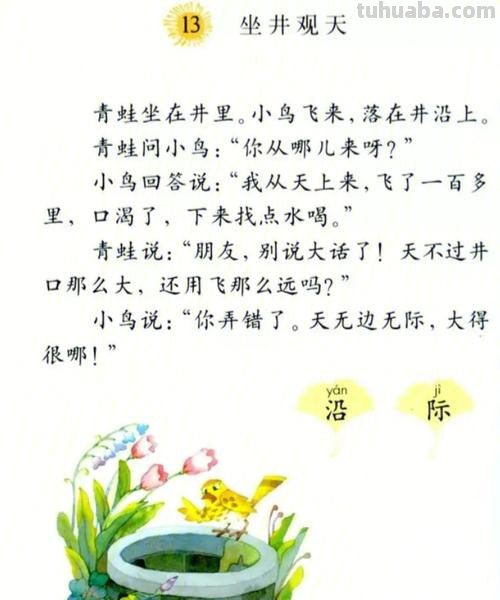 tuhuaba.com
13 坐井观天
青蛙坐在井里。小鸟飞来，落在井沿上。
青蛙问小鸟：“你从哪儿来呀？”
小鸟回答说：“我从天上来，飞了一百多
里，口渴了，下来找点水喝。”
青蛙说：“朋友，别说大话了！天不过井
口那么大，还用飞那么远吗？”
小鸟说：“你弄错了。天无边无际，大得
很哪！”
yán jì
沿 际